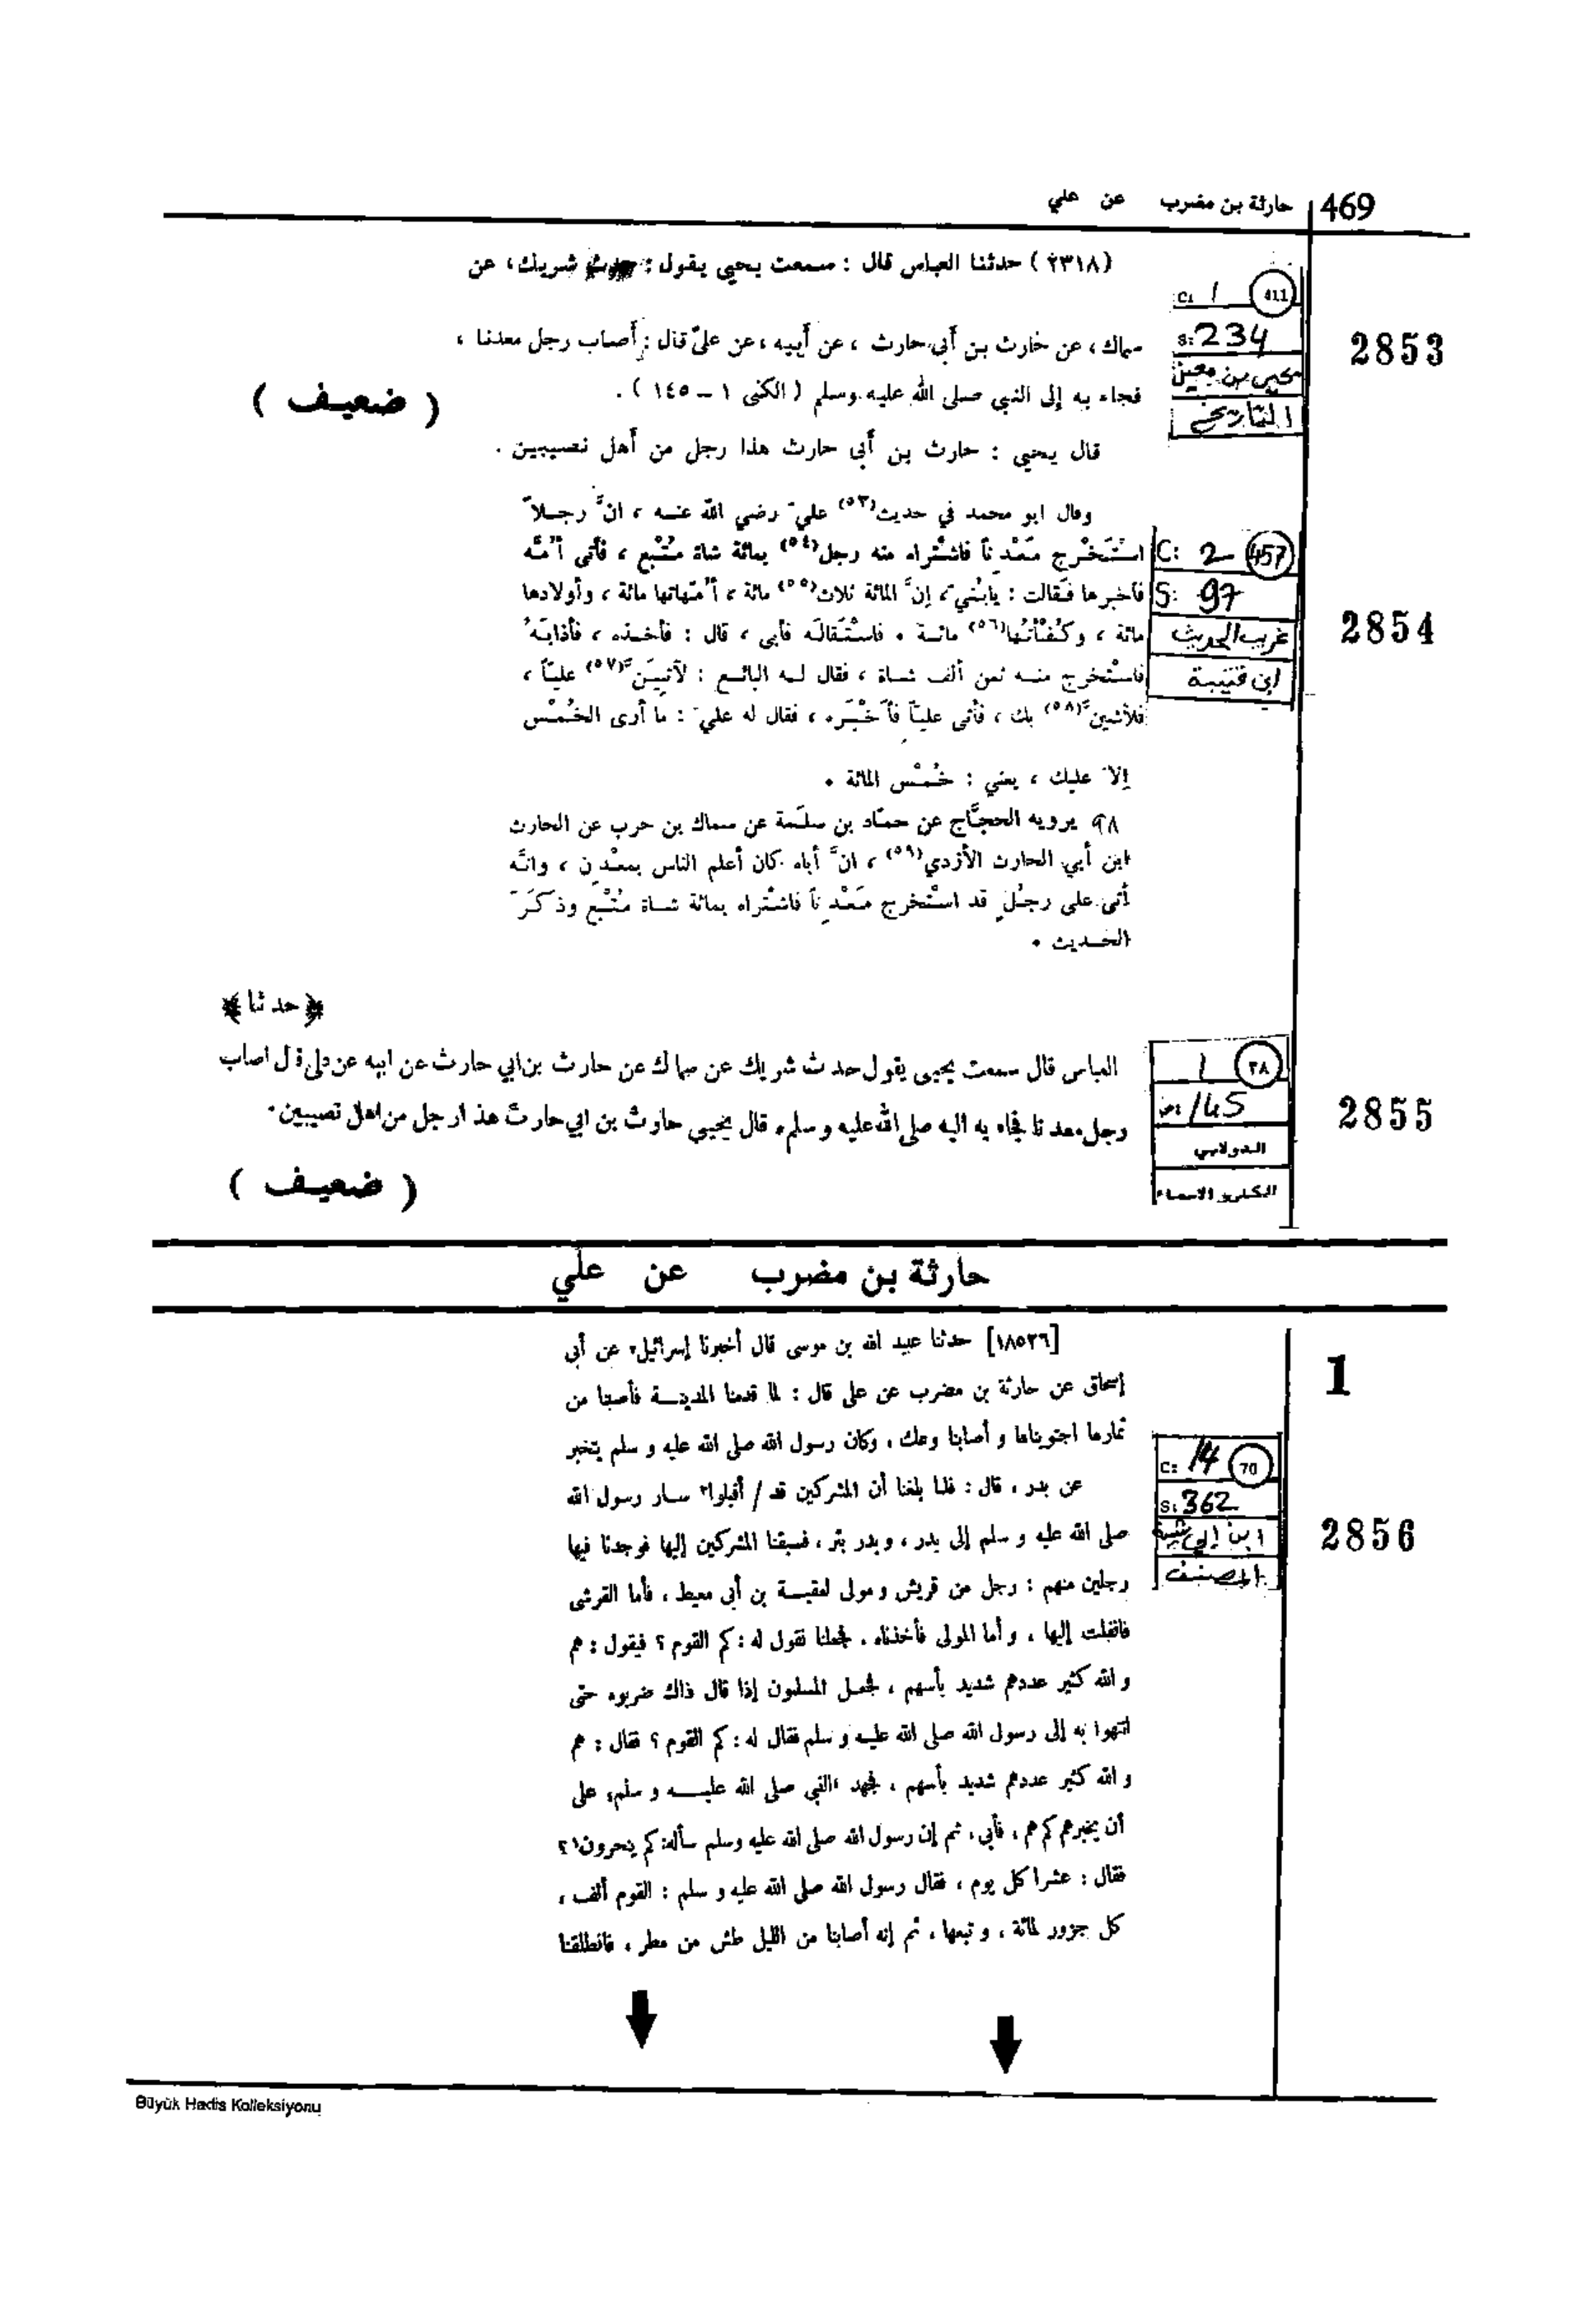 469 حارثة بن مضرب عن علي
(٢٣١٨) حدثنا العباس قال : سمعت يحيى يقول : حدث شريك، عن
سماك، عن حارث بن أبي حارث ، عن أبيه ، عن عليّ قال : أصاب رجل معدنا ،
فجاء به إلى النبي صلى الله عليه وسلم ( الكنى ١ – ١٤٥ ) .
( ضعيف )
قال يحيى : حارث بن أبي حارث هذا رجل من أهل نصيبين .
C: 1 411
S: 234
يحيى بن معين
التاريخ
2853
وقال ابو محمد في حديث(٥٣) عليّ رضي الله عنه ، انّ رجلاً
استَخْرج مَعْدِناً فاشْتراه منه رجل(٥٤) بمائة شاة مُتْبِع ، فأتى أُمَّه
فأخبرها فقالت : يابُنيّ، إنَّ المائة ثلاث(٥٥) مائة ، أُمّهاتها مائة ، وأولادها
مائة ، وكُفْأتُها(٥٦) مائة . فاسْتقالَه فأبى ، قال : فأخذه ، فأذابَهُ
فاسْتخرج منه ثمن ألف شاة ، فقال له البائع : لآتِيَنّ(٥٧) عليّاً ،
فلأثينّ(٥٨) بك ، فأتى عليّاً فأخْبَره ، فقال له عليّ : ما أرى الخُمْس
إلاّ عليك ، يعني : خُمْس المائة .
٩٨ يرويه الحجّاج عن حمّاد بن سلَمة عن سماك بن حرب عن الحارث
ابن أبي الحارث الأزدي(٥٩) ، انّ أباه كان أعلم الناس بمعْدِن ، وانّه
أتى على رجُلٍ قد استْخرج مَعْدِناً فاشْتراه بمائة شاة مُتْبِع وذكَرَ
الحديث .
C: 2 457
S: 97
غريب الحديث
ابن قتيبة
2854
﴿حدثنا﴾
العباس قال سمعت يحيى يقول حدث شريك عن سماك عن حارث بن ابي حارث عن ابيه عن علي قال اصاب
رجل معدنا فجاء به اليه صلى الله عليه وسلم، قال يحيى حارث بن ابي حارث هذا رجل من اهل نصيبين.
( ضعيف )
1 ٣٨
ص: 145
الدولابي
الكنى والاسماء
2855
حارثة بن مضرب عن علي
1
[١٨٥٢٦] حدثنا عبيد الله بن موسى قال أخبرنا إسرائيل عن أبي
إسحاق عن حارثة بن مضرب عن علي قال : لما قدمنا المدينة فأصبنا من
ثمارها اجتويناها و أصابنا وعك ، وكان رسول الله صلى الله عليه و سلم يتخبر
عن بدر ، قال : فلما بلغنا أن المشركين قد / أقبلوا٢ سار رسول الله
صلى الله عليه و سلم إلى بدر ، و بدر بئر ، فسبقنا المشركين إليها فوجدنا فيها
رجلين منهم : رجل من قريش و مولى لعقبة بن أبي معيط ، فأما القرشي
فانفلت إليها ، و أما المولى فأخذناه ، فجعلنا نقول له : كم القوم ؟ فيقول : هم
و الله كثير عددهم شديد بأسهم ، فجعل المسلمون إذا قال ذاك ضربوه حتى
انتهوا به إلى رسول الله صلى الله عليه و سلم فقال له : كم القوم ؟ فقال : هم
و الله كثير عددهم شديد بأسهم ، فجهد النبي صلى الله عليه و سلم، على
أن يخبرهم كم هم ، فأبى ، ثم إن رسول الله صلى الله عليه وسلم سأله: كم ينحرون١؟
فقال : عشرا كل يوم ، فقال رسول الله صلى الله عليه و سلم : القوم ألف ،
كل جزور لمائة ، و تبعها ، ثم إنه أصابنا من الليل طش من مطر ، فانطلقنا
C: 14 70
S: 362
ابن ابي شيبة
المصنف
2856
Büyük Hadis Kolleksiyonu